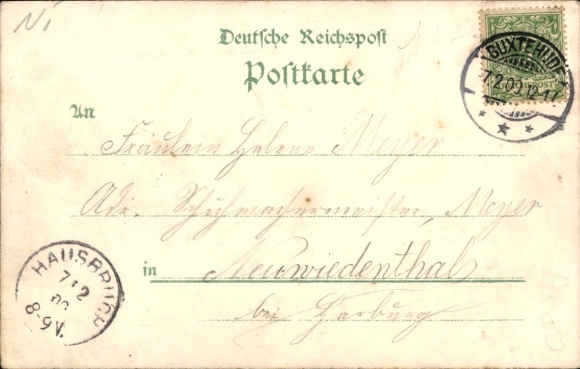 N i
Deutsche Reichspost
Postkarte
BUXTEHUDE
7.2.00.12-1
An
Fräulein Helene Meyer
Adr. Schuhmachermeister, Meyer
in Neuwiedenthal
bei Harburg
HAUSBRUCH
7 2
00
8-9V.